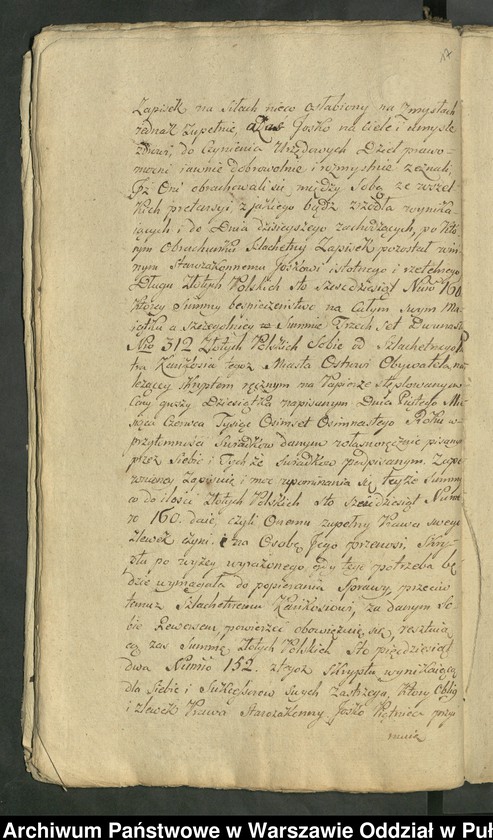 17
Zapisek na siłach nieco osłabiony na zmysłach
jednak zupełnie, a Josko na Ciele i umyśle
zdrowi, do Czynienia Urzędowych Dzieł prawo-
mocni iawnie dobrowolnie i rozmyślnie zeznali
Iż Oni obrachowali się między Sobą ze wszel-
kich pretensyi, z jakiego bądź źrzódła wynika-
iących i do Dnia dzisieyszego zachodzących, po któ-
rym Obrachunku Szlachetny Zapisek pozostał win-
nym Starozakonnemu Joskowi istotnego i rzetelnego
Długu Złotych Polskich Sto Sześćdziesiąt Nuro 160.
którey Summy bespieczeństwo na Całym swym Ma-
iątku a szczegolniey w Summie Trzech Set Dwunastu
Nro 312 Złotych Polskich Sobie od Szlachetnego
tegoż Miasta Ostrowi Obywatela na-
leżącey Skryptem ręcznym na Papierze stęplowanym
Ceny groszy Dziesiątka napisanym Dnia Piątego Mie-
siąca Czerwca Tysiąc Osimset Osimnastego Roku w
przytomności Świadków danym własnoręcznie pisanym
przez Siebie i Tychże Świadków podpisanym. Zape-
wnioney Zapisuie i moc upominania się teyże Summy
co do ilości Złotych Polskich Sto Sześćdziesiąt Nume-
ro 160. daie, czyli Onemu zupełny Prawa swego
zlewek czyni. i na Osobę Jego przenosi, Skry-
ptu po wyżey wyrażonego gdy tego potrzeba bę-
dzie wymagała do popierania Sprawy przeciw
temuż Szlachetnemu za danym So-
bie Rewersem powierzyć obowięzuie się, resztuią-
cą zaś Summę Złotych Polskich Sto pięćdziesiąt
dwa Numro 152. z tegoż Skryptu wynikaiącą
dla Siebie i Sukcessorów swych zastrzega, który Oblig
i zlewek Prawa Starozakonny Josko przy-
muie
Archiwum Państwowe w Warszawie Oddział w Puł